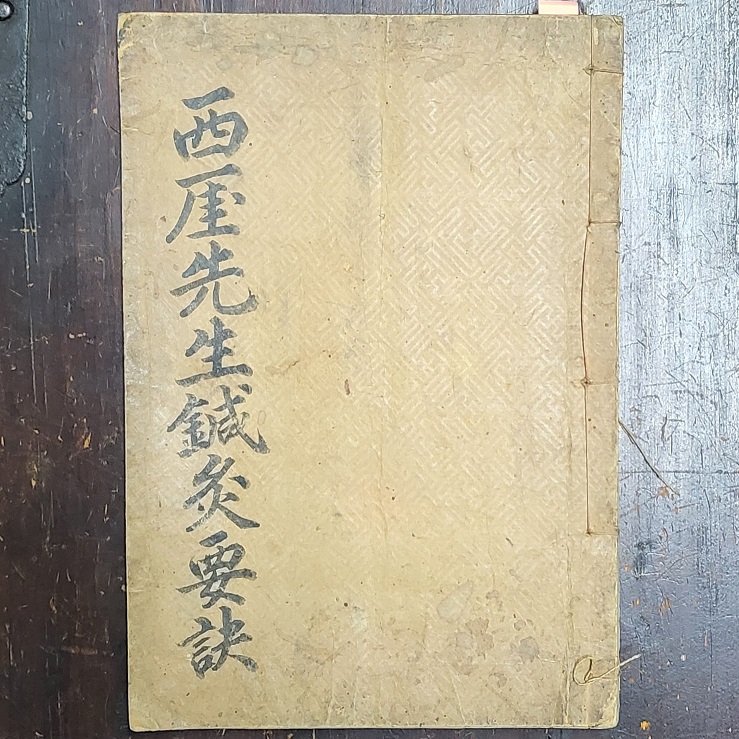 西厓先生鍼灸要訣